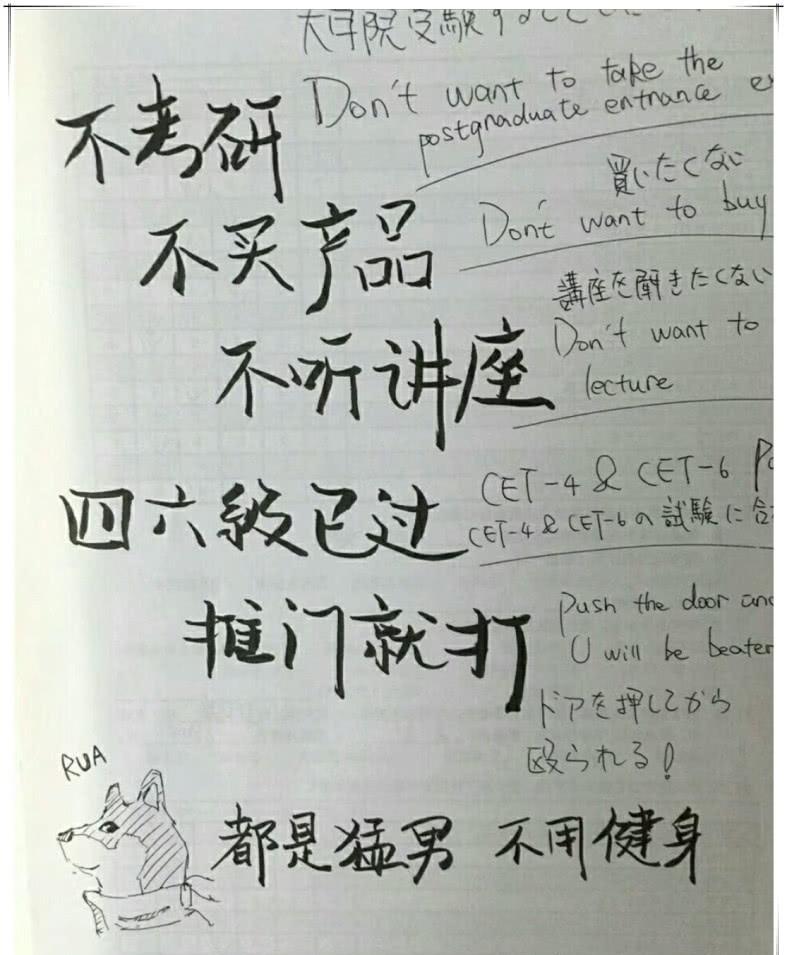 大学院受験する
Don't want to take the
postgraduate entrance
不考研
買いたくない
Don't want to buy
不买产品
講座を聞きたくない
Don't want to
lecture
不听讲座
CET-4 & CET-6
CET-4 & CET-6の試験に合
四六级已过
Push the door and
U will be beaten
推门就打
ドアを押してから
殴られる!
RUA
都是猛男 不用健身